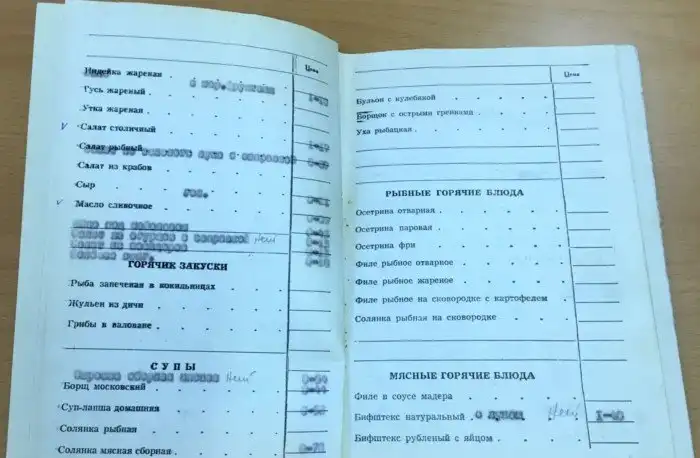 Цена
Индейка жареная
Гусь жареный
Утка жареная
Салат столичный
Салат рыбный
Салат из крабов
Сыр
Масло сливочное
Нет
ГОРЯЧИЕ ЗАКУСКИ
Рыба запеченая в кокильницах
Жульен из дичи
Грибы в валоване
СУПЫ
Нет
Борщ московский
Суп-лапша домашняя
Солянка рыбная
Солянка мясная сборная
Цена
Бульон с кулебякой
Борщок с острыми гренками
Уха рыбацкая
РЫБНЫЕ ГОРЯЧИЕ БЛЮДА
Осетрина отварная
Осетрина паровая
Осетрина фри
Филе рыбное отварное
Филе рыбное жареное
Филе рыбное на сковородке с картофелем
Солянка рыбная на сковородке
МЯСНЫЕ ГОРЯЧИЕ БЛЮДА
Филе в соусе мадера
Бифштекс натуральный с луком Нет
Бифштекс рубленый с яйцом